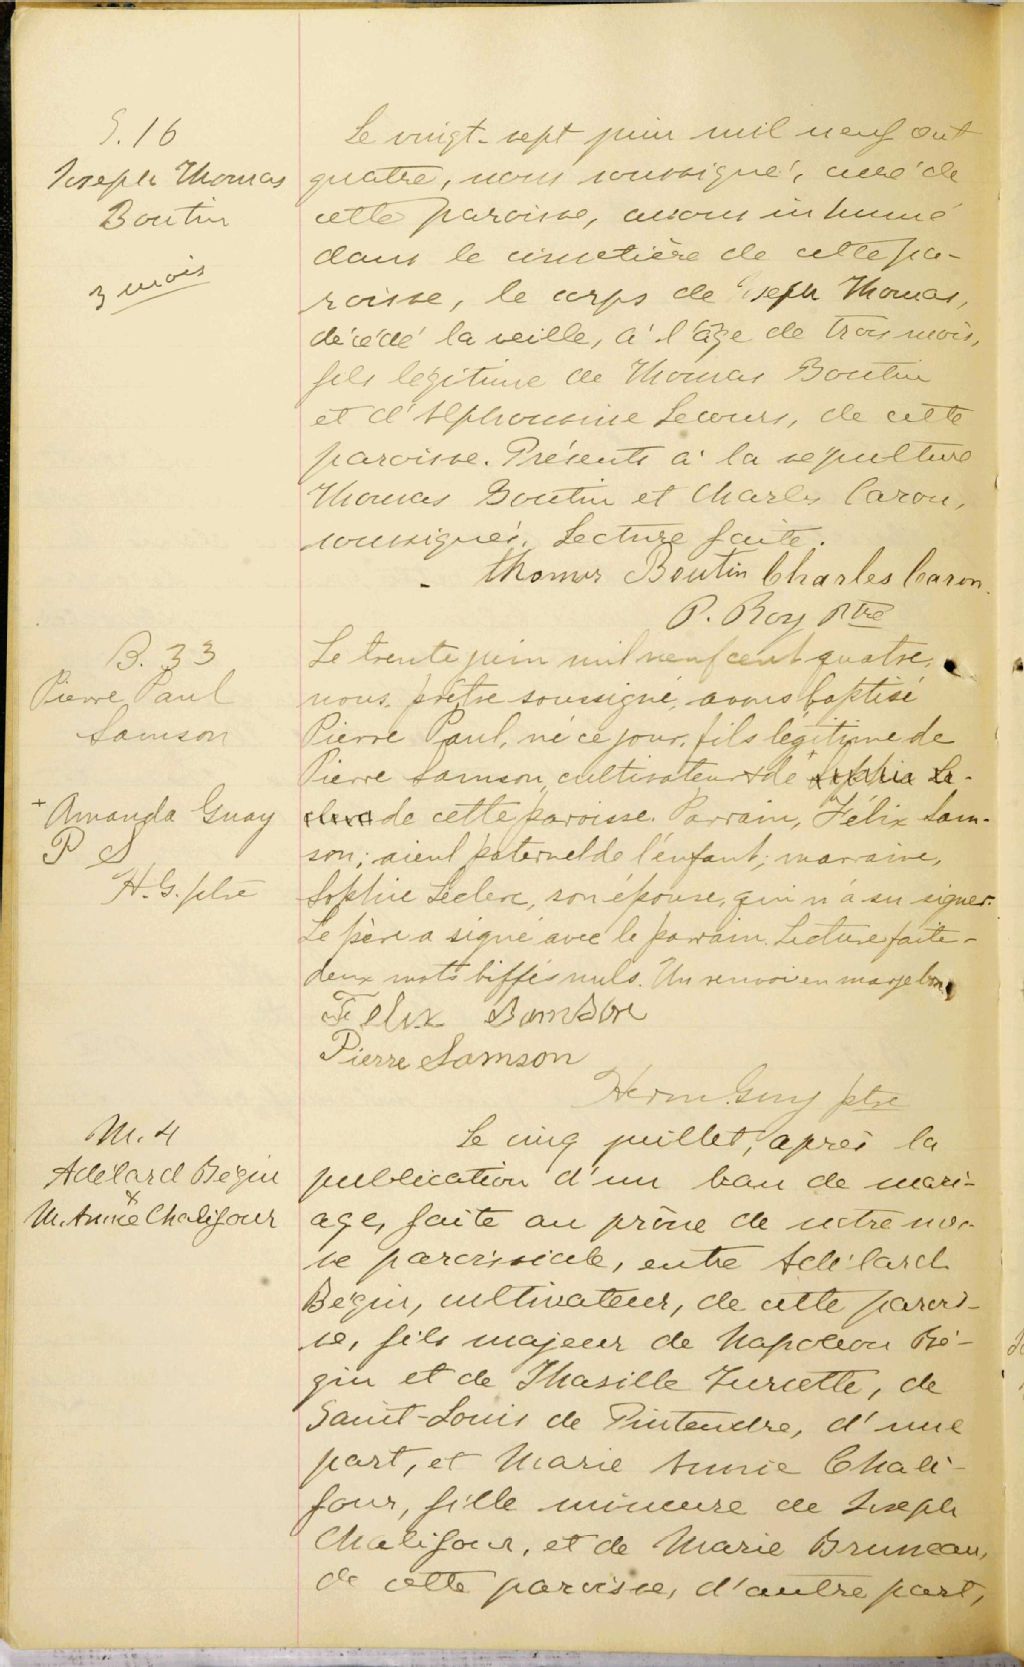 S. 16
Joseph Thomas
Boutin
3 mois
Le vingt-sept juin mil neuf cent
quatre, nous soussigné, curé de
cette paroisse, avons inhumé
dans le cimetière de cette pa-
roisse, le corps de Joseph Thomas,
décédé la veille, à l'âge de trois mois,
fils légitime de Thomas Boutin
et d'Alphonsine Lecours, de cette
paroisse. Présents à la sépulture
Thomas Boutin et Charles Caron,
soussignés. Lecture faite.
Thomas Boutin Charles Caron
P. Roy Ptre
B. 33
Pierre Paul
Samson
+ Amanda Guay
P S
H.G. ptre
Le trente juin mil neuf cent quatre,
nous, prêtre soussigné, avons baptisé
Pierre Paul, né ce jour, fils légitime de
Pierre Samson, cultivateur & de + Sophie Le-
clerc de cette paroisse. Parrain, Félix Sam-
son, aieul paternel de l'enfant; marraine,
Sophie Leclerc, son épouse, qui n'a su signer.
Le père a signé avec le parrain. Lecture faite -
deux mots biffés nuls. Un renvoi en marge bon.
Felix Samson
Pierre Samson
Herm. Guay ptre
M. 4
Adélard Bégin
&
M. Annie Chalifour
Le cinq juillet, après la
publication d'un ban de mari-
age, faite au prône de notre mes-
se paroissiale, entre Adélard
Bégin, cultivateur, de cette parois-
se, fils majeur de Napoléon Bé-
gin et de Thasille Turcotte, de
Saint-Louis de Pintendre, d'une
part, et Marie Annie Chali-
four, fille mineure de Joseph
Chalifour, et de Marie Bruneau,
de cette paroisse, d'autre part,